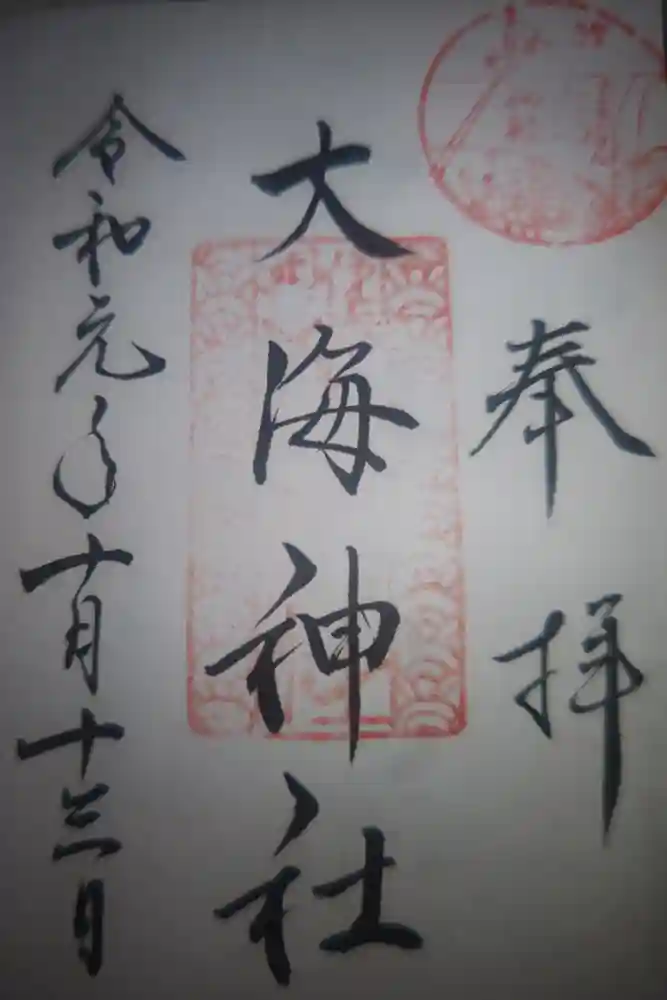 奉拝
大海神社
令和元年十月十三日